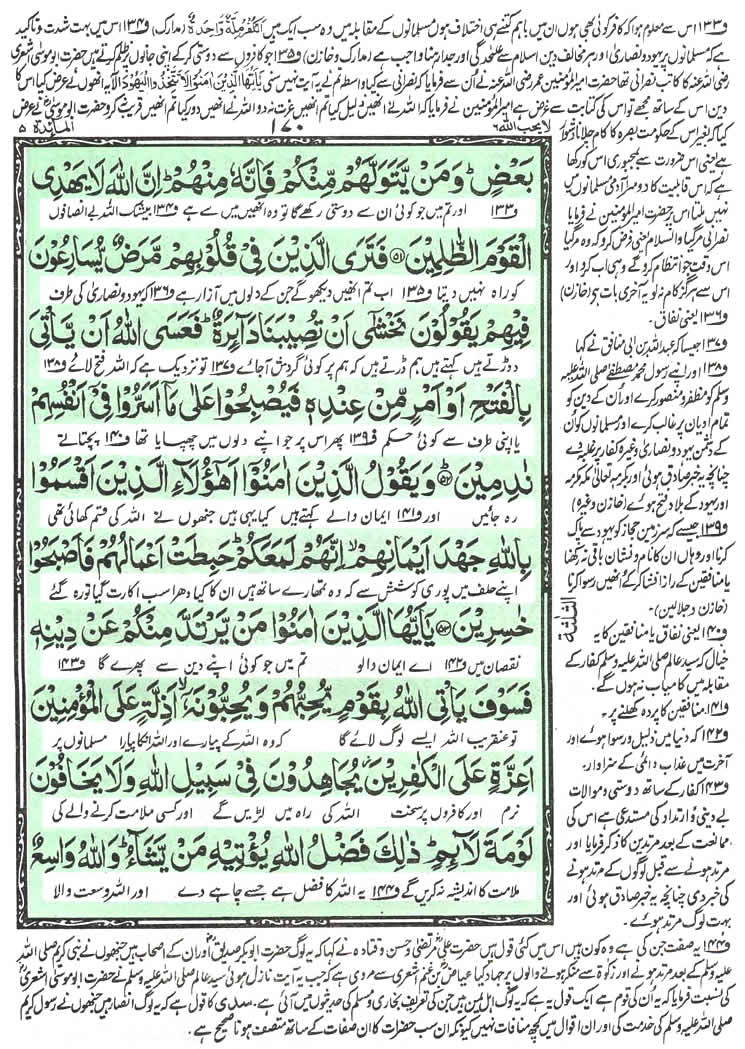 ف۱۳۳ اس سے معلوم ہوا کہ کافر کوئی بھی ہوں ان میں باہم کتنے ہی اختلاف ہوں مسلمانوں کے مقابلہ میں وہ سب ایک ہیں اَلْکُفْرُ مِلَّۃٌ وَّاحِدَۃٌ (مدارک) ف۱۳۴ اس میں بہت شدت و تاکید
ہے کہ مسلمانوں پر یہود و نصاریٰ اور ہر مخالف دین اسلام سے علیحدگی اور جدا رہنا واجب ہے (مدارک وخازن) ف۱۳۵ جو کافروں سے دوستی کر کے اپنی جانوں پر ظلم کرتے ہیں حضرت ابو موسیٰ اشعری
رضی اللہ عنہ کا کاتب نصرانی تھا حضرت امیر المؤمنین عمر رضی اللہ عنہ نے ان سے فرمایا کہ نصرانی سے کیا واسطہ تم نے یہ آیت نہیں سنی یٰٓاَیُّھَا الَّذِیْنَ اٰمَنُوْا لَا تَتَّخِذُوا الْیَھُوْدَ الآیہ انھوں نے عرض کیا اس کا
دین اس کے ساتھ مجھے تو اس کی کتابت سے غرض ہے امیر المؤمنین نے فرمایا کہ اللہ نے انھیں ذلیل کیا تم انھیں عزت نہ دو اللہ نے انھیں دور کیا تم انھیں قریب نہ کرو حضرت ابو موسیٰ نے عرض
لا یحب اللہ ۶
۱۷۰
المآئدۃ ۵
بَعْضٍ ؕ وَمَنْ یَّتَوَلَّهُمْ مِّنْكُمْ فَاِنَّهٗ مِنْهُمْ ؕ اِنَّ اللّٰهَ لَا یَهْدِی
ف۱۳۳ اور تم میں جو کوئی ان سے دوستی رکھے گا تو وہ انھیں میں سے ہے ف۱۳۴ بیشک اللہ بے انصافوں
الْقَوْمَ الظّٰلِمِیْنَ ﴿۵۱﴾ فَتَرَی الَّذِیْنَ فِیْ قُلُوْبِهِمْ مَّرَضٌ یُّسَارِعُوْنَ
کو راہ نہیں دیتا ف۱۳۵ اب تم انھیں دیکھو گے جن کے دلوں میں آزار ہے ف۱۳۶ کہ یہود و نصاریٰ کی طرف
فِیْهِمْ یَقُوْلُوْنَ نَخْشٰۤی اَنْ تُصِیْبَنَا دَآىِٕرَةٌ ؕ فَعَسَی اللّٰهُ اَنْ یَّاْتِیَ
دوڑتے ہیں کہتے ہیں ہم ڈرتے ہیں کہ ہم پر کوئی گردش آجائے ف۱۳۷ تو نزدیک ہے کہ اللہ فتح لائے ف۱۳۸
بِالْفَتْحِ اَوْ اَمْرٍ مِّنْ عِنْدِهٖ فَیُصْبِحُوْا عَلٰی مَاۤ اَسَرُّوْا فِیْۤ اَنْفُسِهِمْ
یا اپنی طرف سے کوئی حکم ف۱۳۹ پھر اس پر جو اپنے دلوں میں چھپایا تھا ف۱۴۰ پچتاتے
نٰدِمِیْنَ ﴿۵۲﴾ وَیَقُوْلُ الَّذِیْنَ اٰمَنُوْۤا اَهٰۤؤُلَآءِ الَّذِیْنَ اَقْسَمُوْا
رہ جائیں اور ف۱۴۱ ایمان والے کہتے ہیں کیا یہی ہیں جنھوں نے اللہ کی قسم کھائی تھی
بِاللّٰهِ جَهْدَ اَیْمَانِهِمْ ۙ اِنَّهُمْ لَمَعَكُمْ ؕ حَبِطَتْ اَعْمَالُهُمْ فَاَصْبَحُوْا
اپنے حلف میں پوری کوشش سے کہ وہ تمھارے ساتھ ہیں ان کا کیا دھرا سب اکارت گیا تو رہ گئے
خٰسِرِیْنَ ﴿۵۳﴾ یٰۤاَیُّهَا الَّذِیْنَ اٰمَنُوْا مَنْ یَّرْتَدَّ مِنْكُمْ عَنْ دِیْنِهٖ
نقصان میں ف۱۴۲ اے ایمان والو تم میں جو کوئی اپنے دین سے پھرے گا ف۱۴۳
فَسَوْفَ یَاْتِی اللّٰهُ بِقَوْمٍ یُّحِبُّهُمْ وَیُحِبُّوْنَهٗۤ ۙ اَذِلَّةٍ عَلَی الْمُؤْمِنِیْنَ
تو عنقریب اللہ ایسے لوگ لائے گا کہ وہ اللہ کے پیارے اور اللہ ان کا پیارا مسلمانوں پر
اَعِزَّةٍ عَلَی الْكٰفِرِیْنَ ؗ یُجَاهِدُوْنَ فِیْ سَبِیْلِ اللّٰهِ وَلَا یَخَافُوْنَ
نرم اور کافروں پر سخت اللہ کی راہ میں لڑیں گے اور کسی ملامت کرنے والے کی
لَوْمَةَ لَآىِٕمٍ ؕ ذٰلِكَ فَضْلُ اللّٰهِ یُؤْتِیْهِ مَنْ یَّشَآءُ ؕ وَاللّٰهُ وَاسِعٌ
ملامت کا اندیشہ نہ کریں گے ف۱۴۴ یہ اللہ کا فضل ہے جسے چاہے دے اور اللہ وسعت والا
الثلثۃ
کیا بغیر اس کے حکومت بصرہ کا کام چلانا دشوار
ہے یعنی اس ضرورت سے بمجبوری اس کو رکھا
ہے کہ اس قابلیت کا دوسرا آدمی مسلمانوں میں
نہیں ملتا اس پر حضرت امیر المؤمنین نے فرمایا
نصرانی مر گیا والسلام یعنی فرض کرو کہ وہ مر گیا
اس وقت جو انتظام کرو گے وہی اب کرو اور
اس سے ہرگز کام نہ لو یہ آخری بات ہے (خازن)
ف۱۳۶ یعنی نفاق۔
ف۱۳۷ جیسا کہ عبداللہ بن ابی منافق نے کہا
ف۱۳۸ اور اپنے رسول محمد مصطفےٰ صلی اللہ علیہ
وسلم کو مظفر و منصور کرے اور ان کے دین کو
تمام ادیان پر غالب کرے اور مسلمانوں کو ان
کے دشمن یہود و نصاریٰ وغیرہ کفار پر غلبہ دے
چنانچہ یہ خبر صادق ہوئی اور بکرمہ تعالیٰ مکہ مکرمہ
اور یہود کے بلاد فتح ہوئے (خازن وغیرہ)
ف۱۳۹ جیسے کہ سرزمین حجاز کو یہود سے پاک
کرنا اور وہاں ان کا نام و نشان باقی نہ رکھنا
یا منافقین کے راز افشا کر کے انھیں رسوا کرنا
(خازن و جلالین)۔
ف۱۴۰ یعنی نفاق یا منافقین کا یہ
خیال کہ سید عالم صلی اللہ علیہ وسلم کفار کے
مقابلہ میں کامیاب نہ ہوں گے۔
ف۱۴۱ منافقین کا پردہ کھلنے پر۔
ف۱۴۲ کہ دنیا میں ذلیل و رسوا ہوئے اور
آخرت میں عذاب دائمی کے سزاوار۔
ف۱۴۳ کفار کے ساتھ دوستی و موالات
بے دینی و ارتداد کی مستدعی ہے اس کی
ممانعت کے بعد مرتدین کا ذکر فرمایا اور
مرتد ہونے سے قبل لوگوں کے مرتد ہونے
کی خبر دی چنانچہ یہ خبر صادق ہوئی اور
بہت لوگ مرتد ہوئے۔
ف۱۴۴ یہ صفت جن کی ہے وہ کون ہیں اس میں کئی قول ہیں حضرت علی مرتضیٰ و حسن و قتادہ نے کہا کہ یہ لوگ حضرت ابو بکر صدیق اور ان کے اصحاب ہیں جنھوں نے نبی کریم صلی اللہ
علیہ وسلم کے بعد مرتد ہونے اور زکوٰۃ سے منکر ہونے والوں پر جہاد کیا عیاض بن غنم اشعری سے مروی ہے کہ جب یہ آیت نازل ہوئی سید عالم صلی اللہ علیہ وسلم نے حضرت ابو موسیٰ اشعری
کی نسبت فرمایا کہ یہ ان کی قوم ہے ایک قول یہ ہے کہ یہ لوگ اہل یمن ہیں جن کی تعریف بخاری و مسلم کی حدیثوں میں آئی ہے۔ سدی کا قول ہے کہ یہ لوگ انصار ہیں جنھوں نے رسول کریم
صلی اللہ علیہ وسلم کی خدمت کی اور ان اقوال میں کچھ منافات نہیں کیونکہ ان سب حضرات کا ان صفات کے ساتھ متصف ہونا صحیح ہے۔